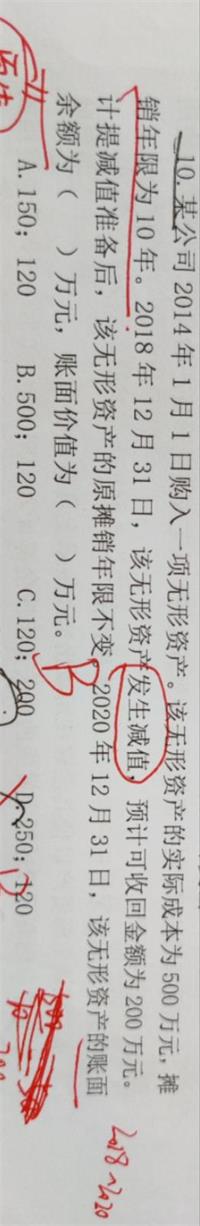 10. 某公司 2014 年 1 月 1 日购入一项无形资产。该无形资产的实际成本为 500 万元，摊
销年限为 10 年。2018 年 12 月 31 日，该无形资产发生减值，预计可收回金额为 200 万元。
计提减值准备后，该无形资产的原摊销年限不变。2020 年 12 月 31 日，该无形资产的账面
余额为（ ）万元，账面价值为（ ）万元。
A. 150；120 B. 500；120 C. 120；200 D. 250；120
B
2018~2020